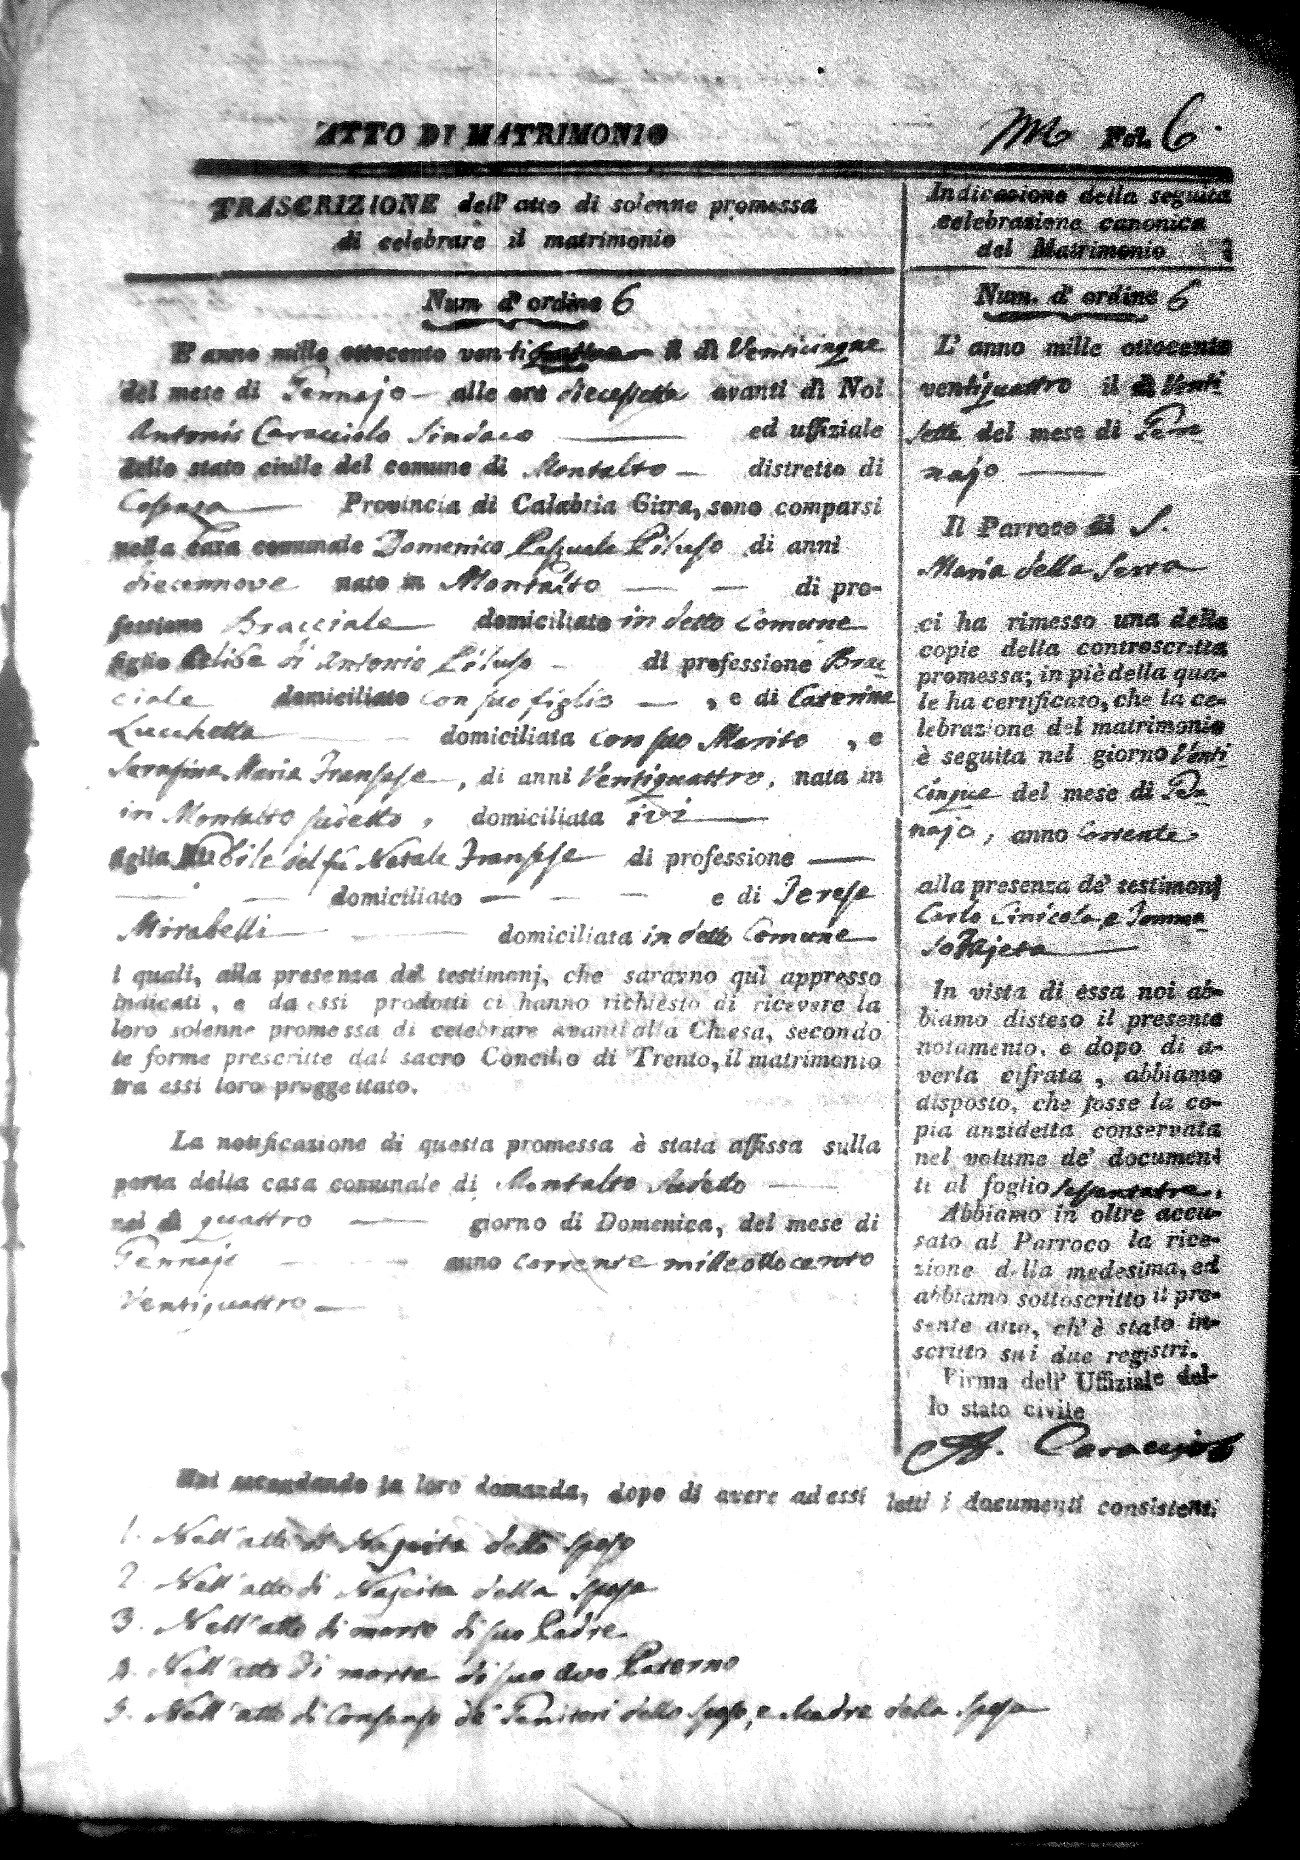 ATTO DI MATRIMONIO
Fol. 6.
TRASCRIZIONE dell' atto di solenne promessa
di celebrare il matrimonio
Num. d' ordine 6
L' anno mille ottocento venti il dì Venticinque
del mese di Gennajo alle ore diecesette avanti di Noi
Antonio Caracciolo Sindaco ed uffiziale
dello stato civile del comune di Montalto distretto di
Cosenza Provincia di Calabria Citra, sono comparsi
nella Casa comunale Domenico Pasquale Piluso di anni
diecennove nato in Montalto di pro-
fessione Bracciale domiciliato in detto Comune
figlio Celibe di Antonio Piluso di professione Brac
ciale domiciliato con suo figlio , e di Caterina
Lucchetta domiciliata con suo Marito , e
Serafina Maria Fransese , di anni Ventiquattro, nata in
in Montalto sudetto , domiciliata ivi
figlia Nubile del fù Natale Fransese di professione
domiciliato e di Teresa
Mirabelli domiciliata in detto Comune
I quali, alla presenza de' testimonj, che saranno quì appresso
indicati, e da essi prodotti ci hanno richiesto di ricevere la
loro solenne promessa di celebrare avanti alla Chiesa, secondo
le forme prescritte dal sacro Concilio di Trento, il matrimonio
tra essi loro proggettato.
La notificazione di questa promessa è stata affissa sulla
porta della casa comunale di Montalto Sudetto
nel dì quattro giorno di Domenica, del mese di
Gennajo anno corrente mille ottocento
Ventiquattro
Indicazione della seguita
celebrazione canonica
del Matrimonio
Num. d' ordine 6
L' anno mille ottocento
ventiquattro il dì Venti
sette del mese di Gen-
najo
Il Parroco di S.
Maria della Serra
ci ha rimesso una delle
copie della controscritta
promessa; in piè della qua-
le ha certificato, che la ce-
lebrazione del matrimonio
è seguita nel giorno Venti
cinque del mese di Gen-
najo, anno Corrente
alla presenza de' testimonj
Carlo Cinicola, e Tomma
so
In vista di essa noi ab-
biamo disteso il presente
notamento, e dopo di a-
verla cifrata, abbiamo
disposto, che fosse la co-
pia anzidetta conservata
nel volume de' documen-
ti al foglio sessantatre.
Abbiamo in oltre accu-
sato al Parroco la rice-
zione della medesima, ed
abbiamo sottoscritto il pre-
sente atto, ch' è stato in-
scritto sui due registri.
Firma dell' Uffiziale del-
lo stato civile
A. Caracciolo
Noi secondando la loro domanda, dopo di avere ad essi letti i documenti consistenti
1. Nell' atto di Nascita dello sposo
2. Nell' atto di Nascita della sposa
3. Nell' atto di morte di suo Padre
4. Nell' atto di morte di suo avo Paterno
5. Nell' atto di Consenso de' Genitori dello sposo, e Madre della sposa